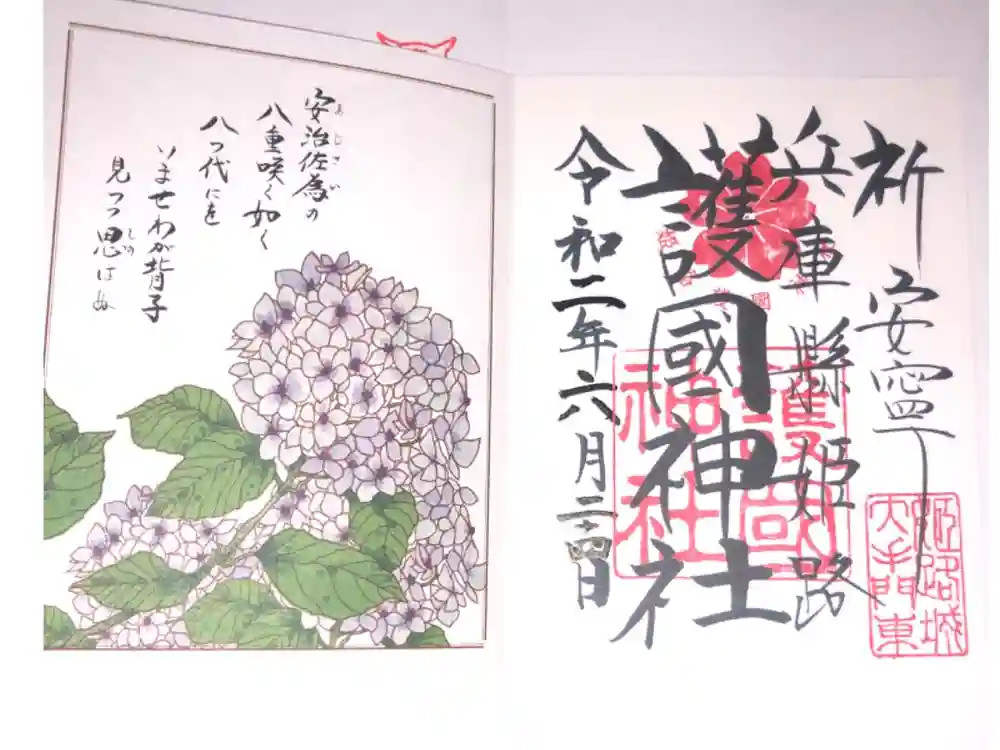 祈 安寧
兵庫縣姫路
護國神社
令和二年六月二十四日
護國
神社
姫路城
大手門東
安治佐為の
あじさい
八重咲く如く
八つ代にを
いませわが背子
見つつ思はむ
しの